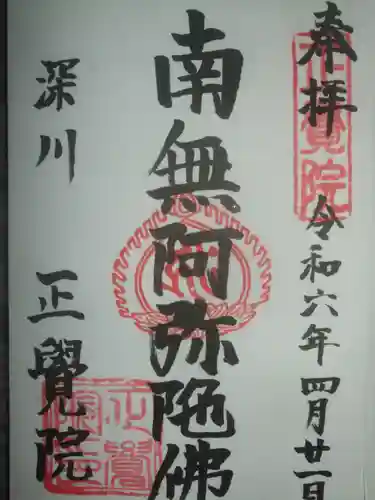 奉拝 令和六年四月廿一日
南無阿弥陀佛
深川 正覺院
正覺院